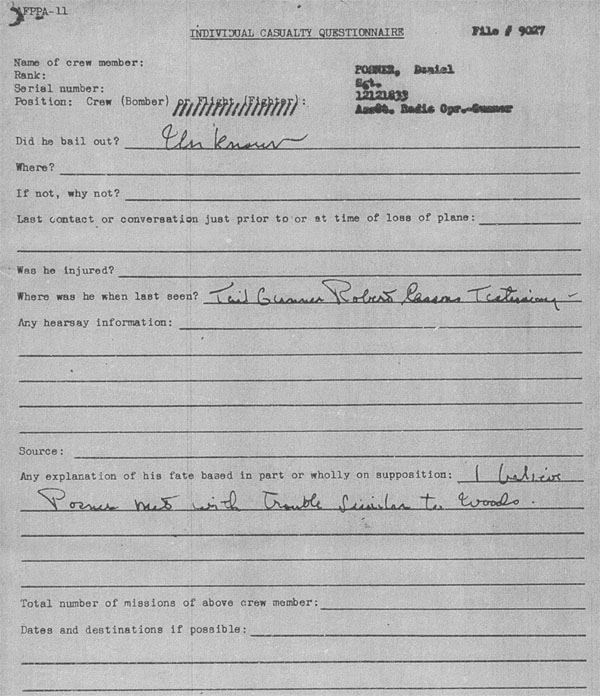 AFPPA-11
INDIVIDUAL CASUALTY QUESTIONNAIRE File # 9027
Name of crew member: POSNER, Daniel
Rank: Sgt.
Serial number: 12121833
Position: Crew (Bomber) or Flight (Fighter): Asst. Radio Opr.-Gunner
Did he bail out? Unknown
Where?
If not, why not?
Last contact or conversation just prior to or at time of loss of plane:
Was he injured?
Where was he when last seen? Tail Gunner Robert Testimony -
Any hearsay information:
Source:
Any explanation of his fate based in part or wholly on supposition: I believe
Posner met with trouble similar to Woods.
Total number of missions of above crew member:
Dates and destinations if possible: